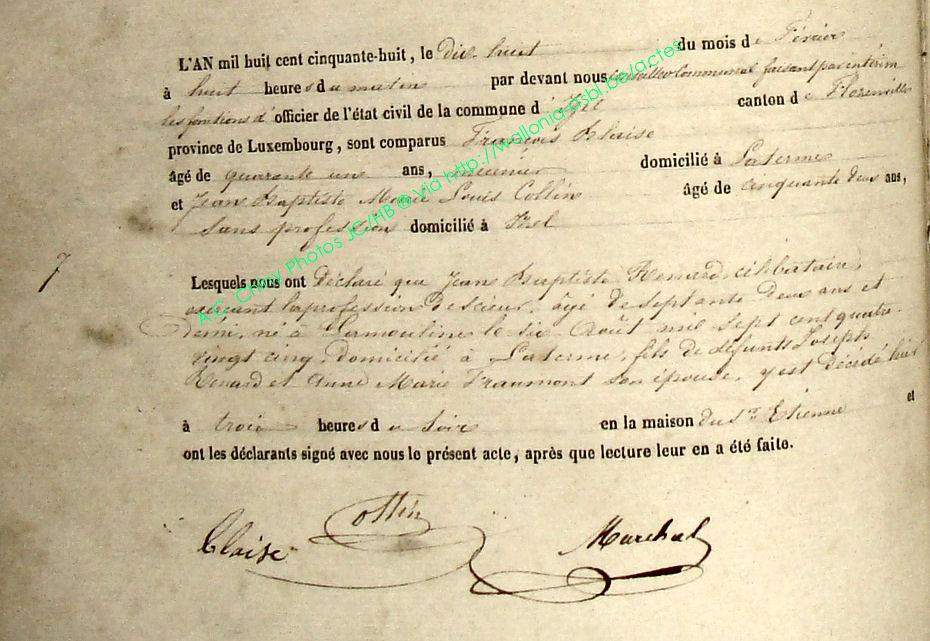 L'AN mil huit cent cinquante-huit, le dix huit du mois de Février
à huit heures du matin par devant nous conseiller Communal faisant par intérim
les fonctions d' officier de l'état civil de la commune d' Izel canton de Florenville
province de Luxembourg, sont comparus François Blaise
âgé de quarante un ans, meunier domicilié à Laterme
et Jean Baptiste Marie Louis Collin âgé de cinquante deux ans,
Sans profession domicilié à Izel
7
Lesquels nous ont Déclaré que Jean Baptiste Renard, célibataire,
exerçant la profession de scieur, âgé de septante Deux ans et
demi, né à Lamouline le six Août mil sept cent quatre
vingt cinq, domicilié à Laterme, fils de défunts Joseph
Renard et Anne Marie Fraumont son épouse, y est Décédé hier
à trois heures du soir en la maison du Sr Etienne et
ont les déclarants signé avec nous le présent acte, après que lecture leur en a été faite.
Blaise Collin Marchal
A.C. Chiny Photos JC/HB © via http://wallonia-asbl.be/actes